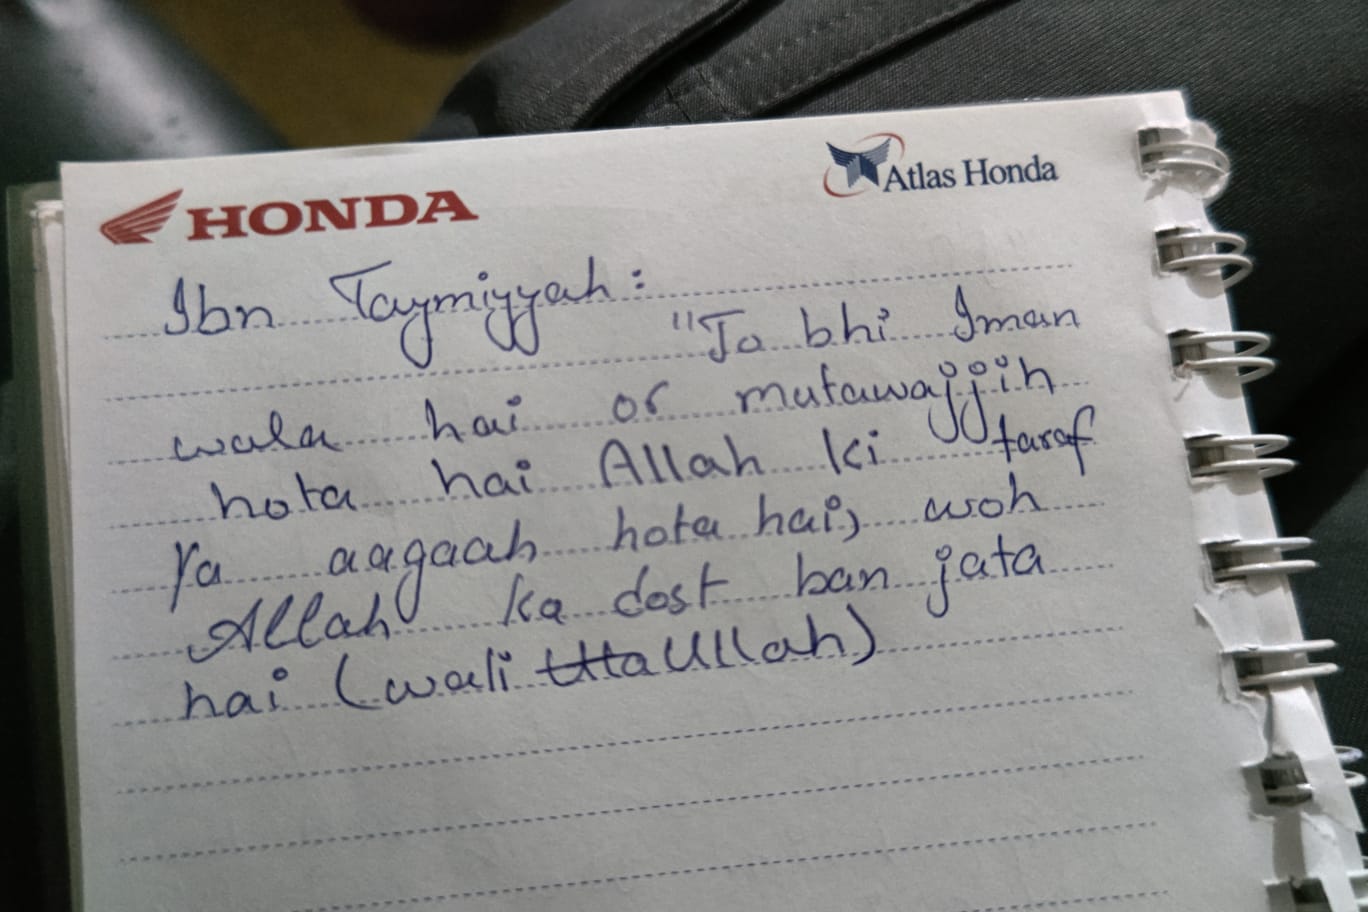 HONDA
Atlas Honda
Ibn Taymiyyah:
"Jo bhi Iman
wala hai or mutawajjih
hota hai Allah ki taraf
Ya aagaah hota hai, woh
Allah ka dost ban jata
hai (wali Ullah)